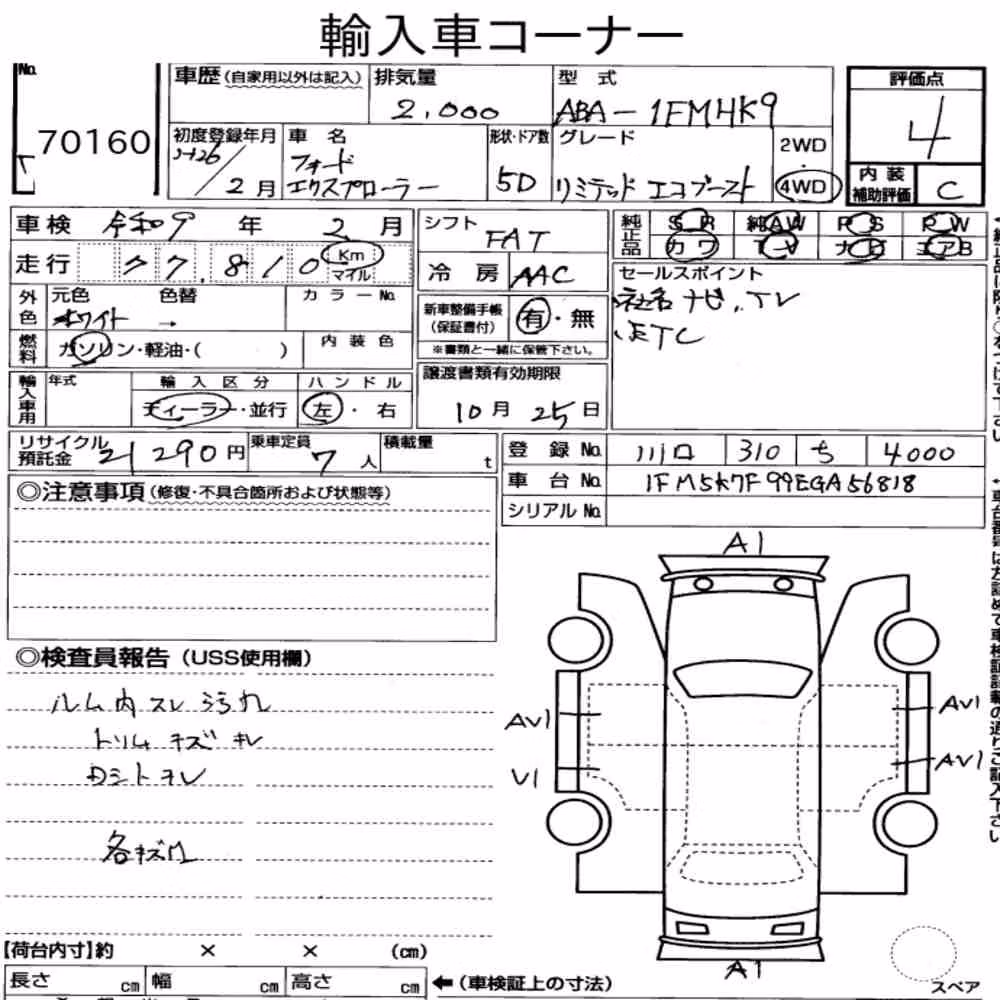 輸入車コーナー
No. 70160
車歴(自家用以外は記入) 排気量 2,000 型式 ABA-1FMHK9
評価点 4
初度登録年月 H26/2月 車名 フォード エクスプローラー 形状・ドア数 5D グレード リミテッド エコブースト 2WD 4WD
内装補助評価 C
車検 令和9年2月
シフト FAT
純正品 SR 純AW PS PW
カワ TV ナビ エアB
走行 77,810 Km マイル
冷房 AAC
セールスポイント
社名ナビ、TV
ETC
外色 元色 ホワイト 色替 → カラーNo.
新車整備手帳(保証書付) 有・無
※書類と一緒に保管下さい。
燃料 ガソリン・軽油・( ) 内装色
輸入車用 年式 輸入区分 ディーラー・並行 ハンドル 左・右
譲渡書類有効期限 10月25日
リサイクル預託金 21290円 乗車定員 7人 積載量 t
登録No. 川口 310 ち 4000
車台No. 1FM5K7F99EGA56818
シリアルNo.
◎注意事項(修復・不具合箇所および状態等)
◎検査員報告(USS使用欄)
ルーム内スレ汚れ
トリムキズキレ
各キズ
A1
AV1
V1
AV1
AV1
A1
【荷台内寸】約 × × (cm)
長さ cm 幅 cm 高さ cm ←(車検証上の寸法)
スペア